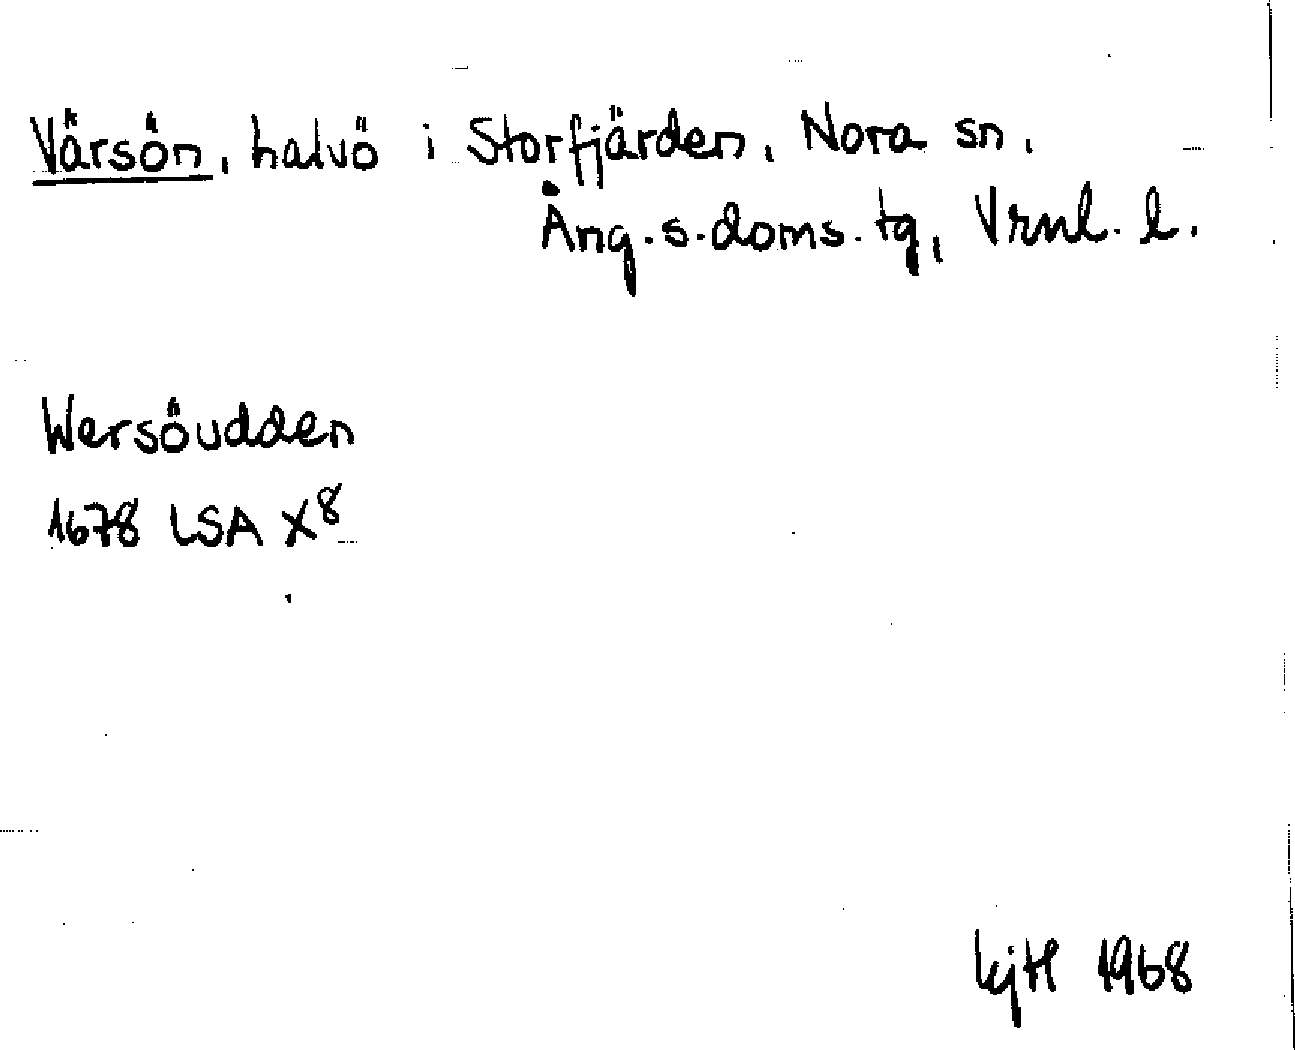 Värsön, halvö i Storfjärden, Nora sn,
Ång.s.doms.tg, Vrnl. l.
Wersöudden
1678 LSA X8
1968